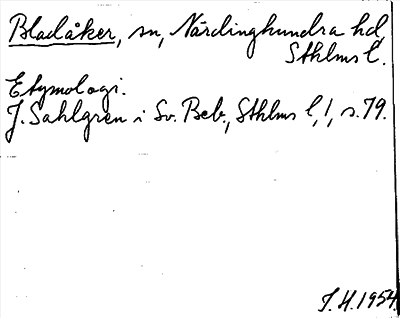 Bladåker, sn, Närdinghundra hd,
Sthlms l.
Etymologi.
J. Sahlgren i Sv. Beb., Sthlms l, 1, s. 79.
J. H. 1954.